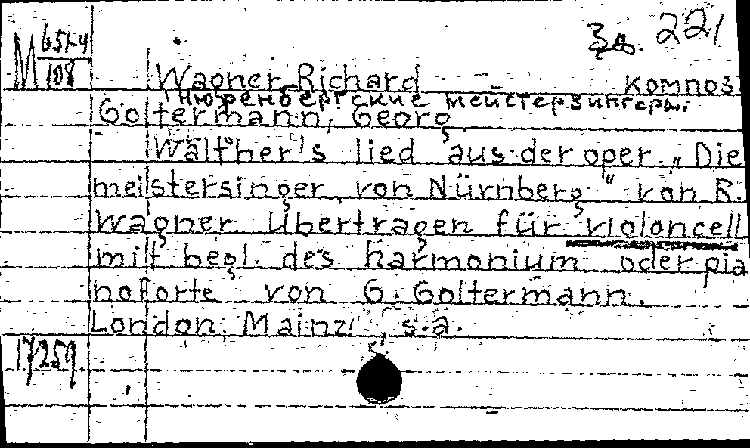 221
M 651-4
108
Wagner, Richard композ.
Нюренбергские мейстерзингеры.
Goltermann, Georg
Walther's lied aus der oper „Die
meistersinger von Nürnberg" von R.
Wagner Übertragen für violoncell
mit begl. des harmonium oder pia
noforte von G. Goltermann.
London, Mainz, s.a.
17259.